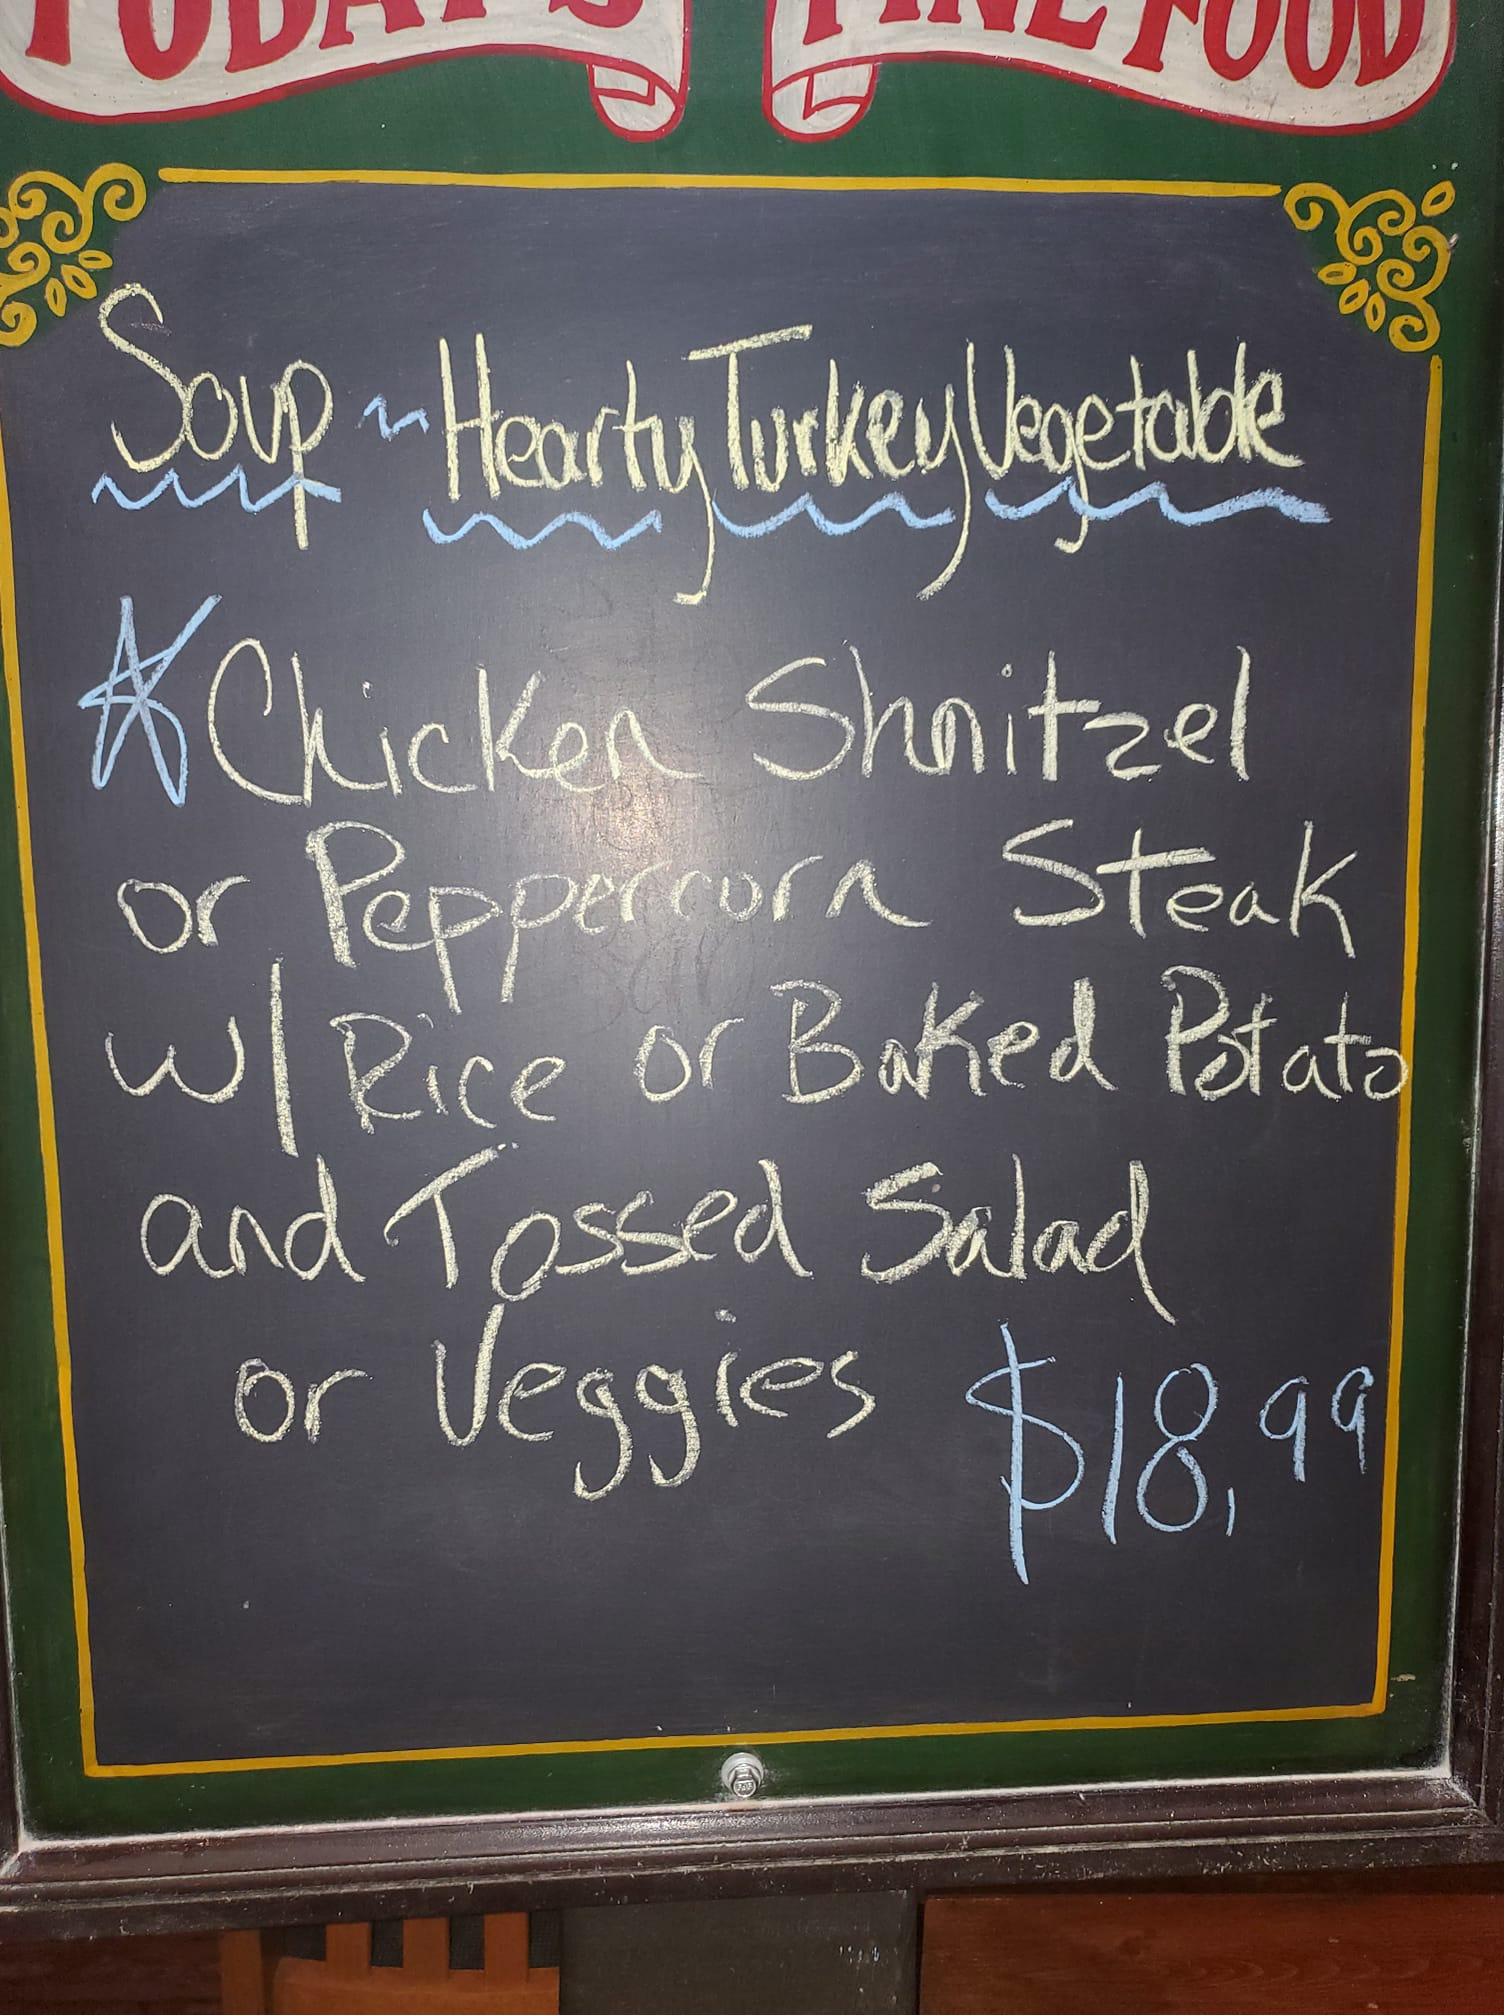 TODAY'S FINE FOOD
Soup ~ Hearty Turkey Vegetable
Chicken Shnitzel
or Peppercorn Steak
w/ Rice or Baked Potato
and Tossed Salad
or Veggies $18.99